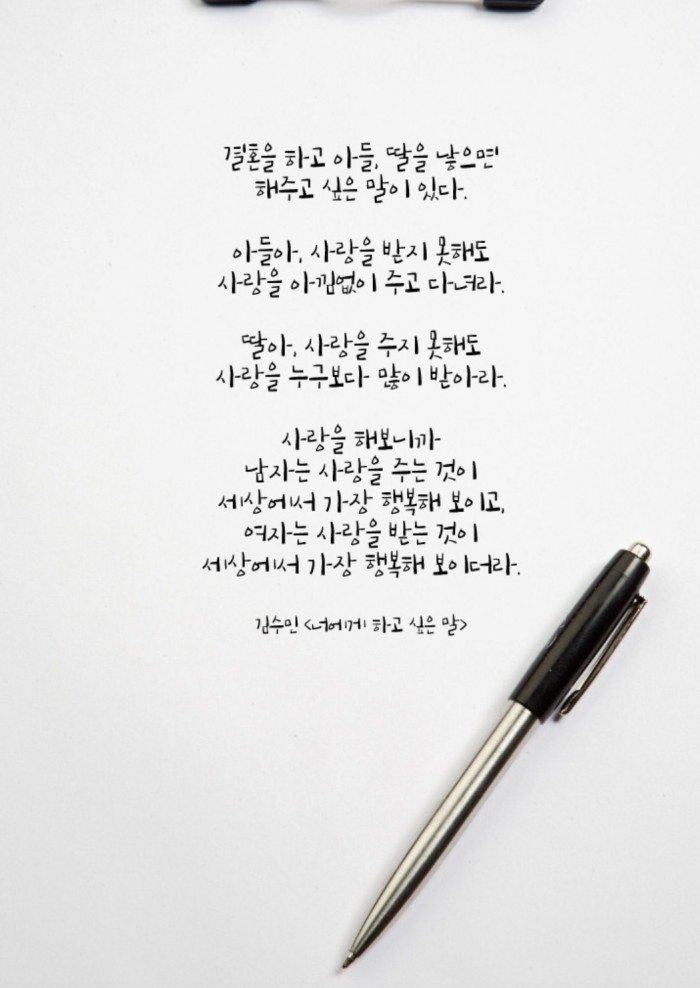 결혼을 하고 아들, 딸을 낳으면
해주고 싶은 말이 있다.
아들아, 사랑을 받지 못해도
사랑을 아낌없이 주고 다녀라.
딸아, 사랑을 주지 못해도
사랑을 누구보다 많이 받아라.
사랑을 해보니까
남자는 사랑을 주는 것이
세상에서 가장 행복해 보이고,
여자는 사랑을 받는 것이
세상에서 가장 행복해 보이더라.
김수민 <너에게 하고 싶은 말>